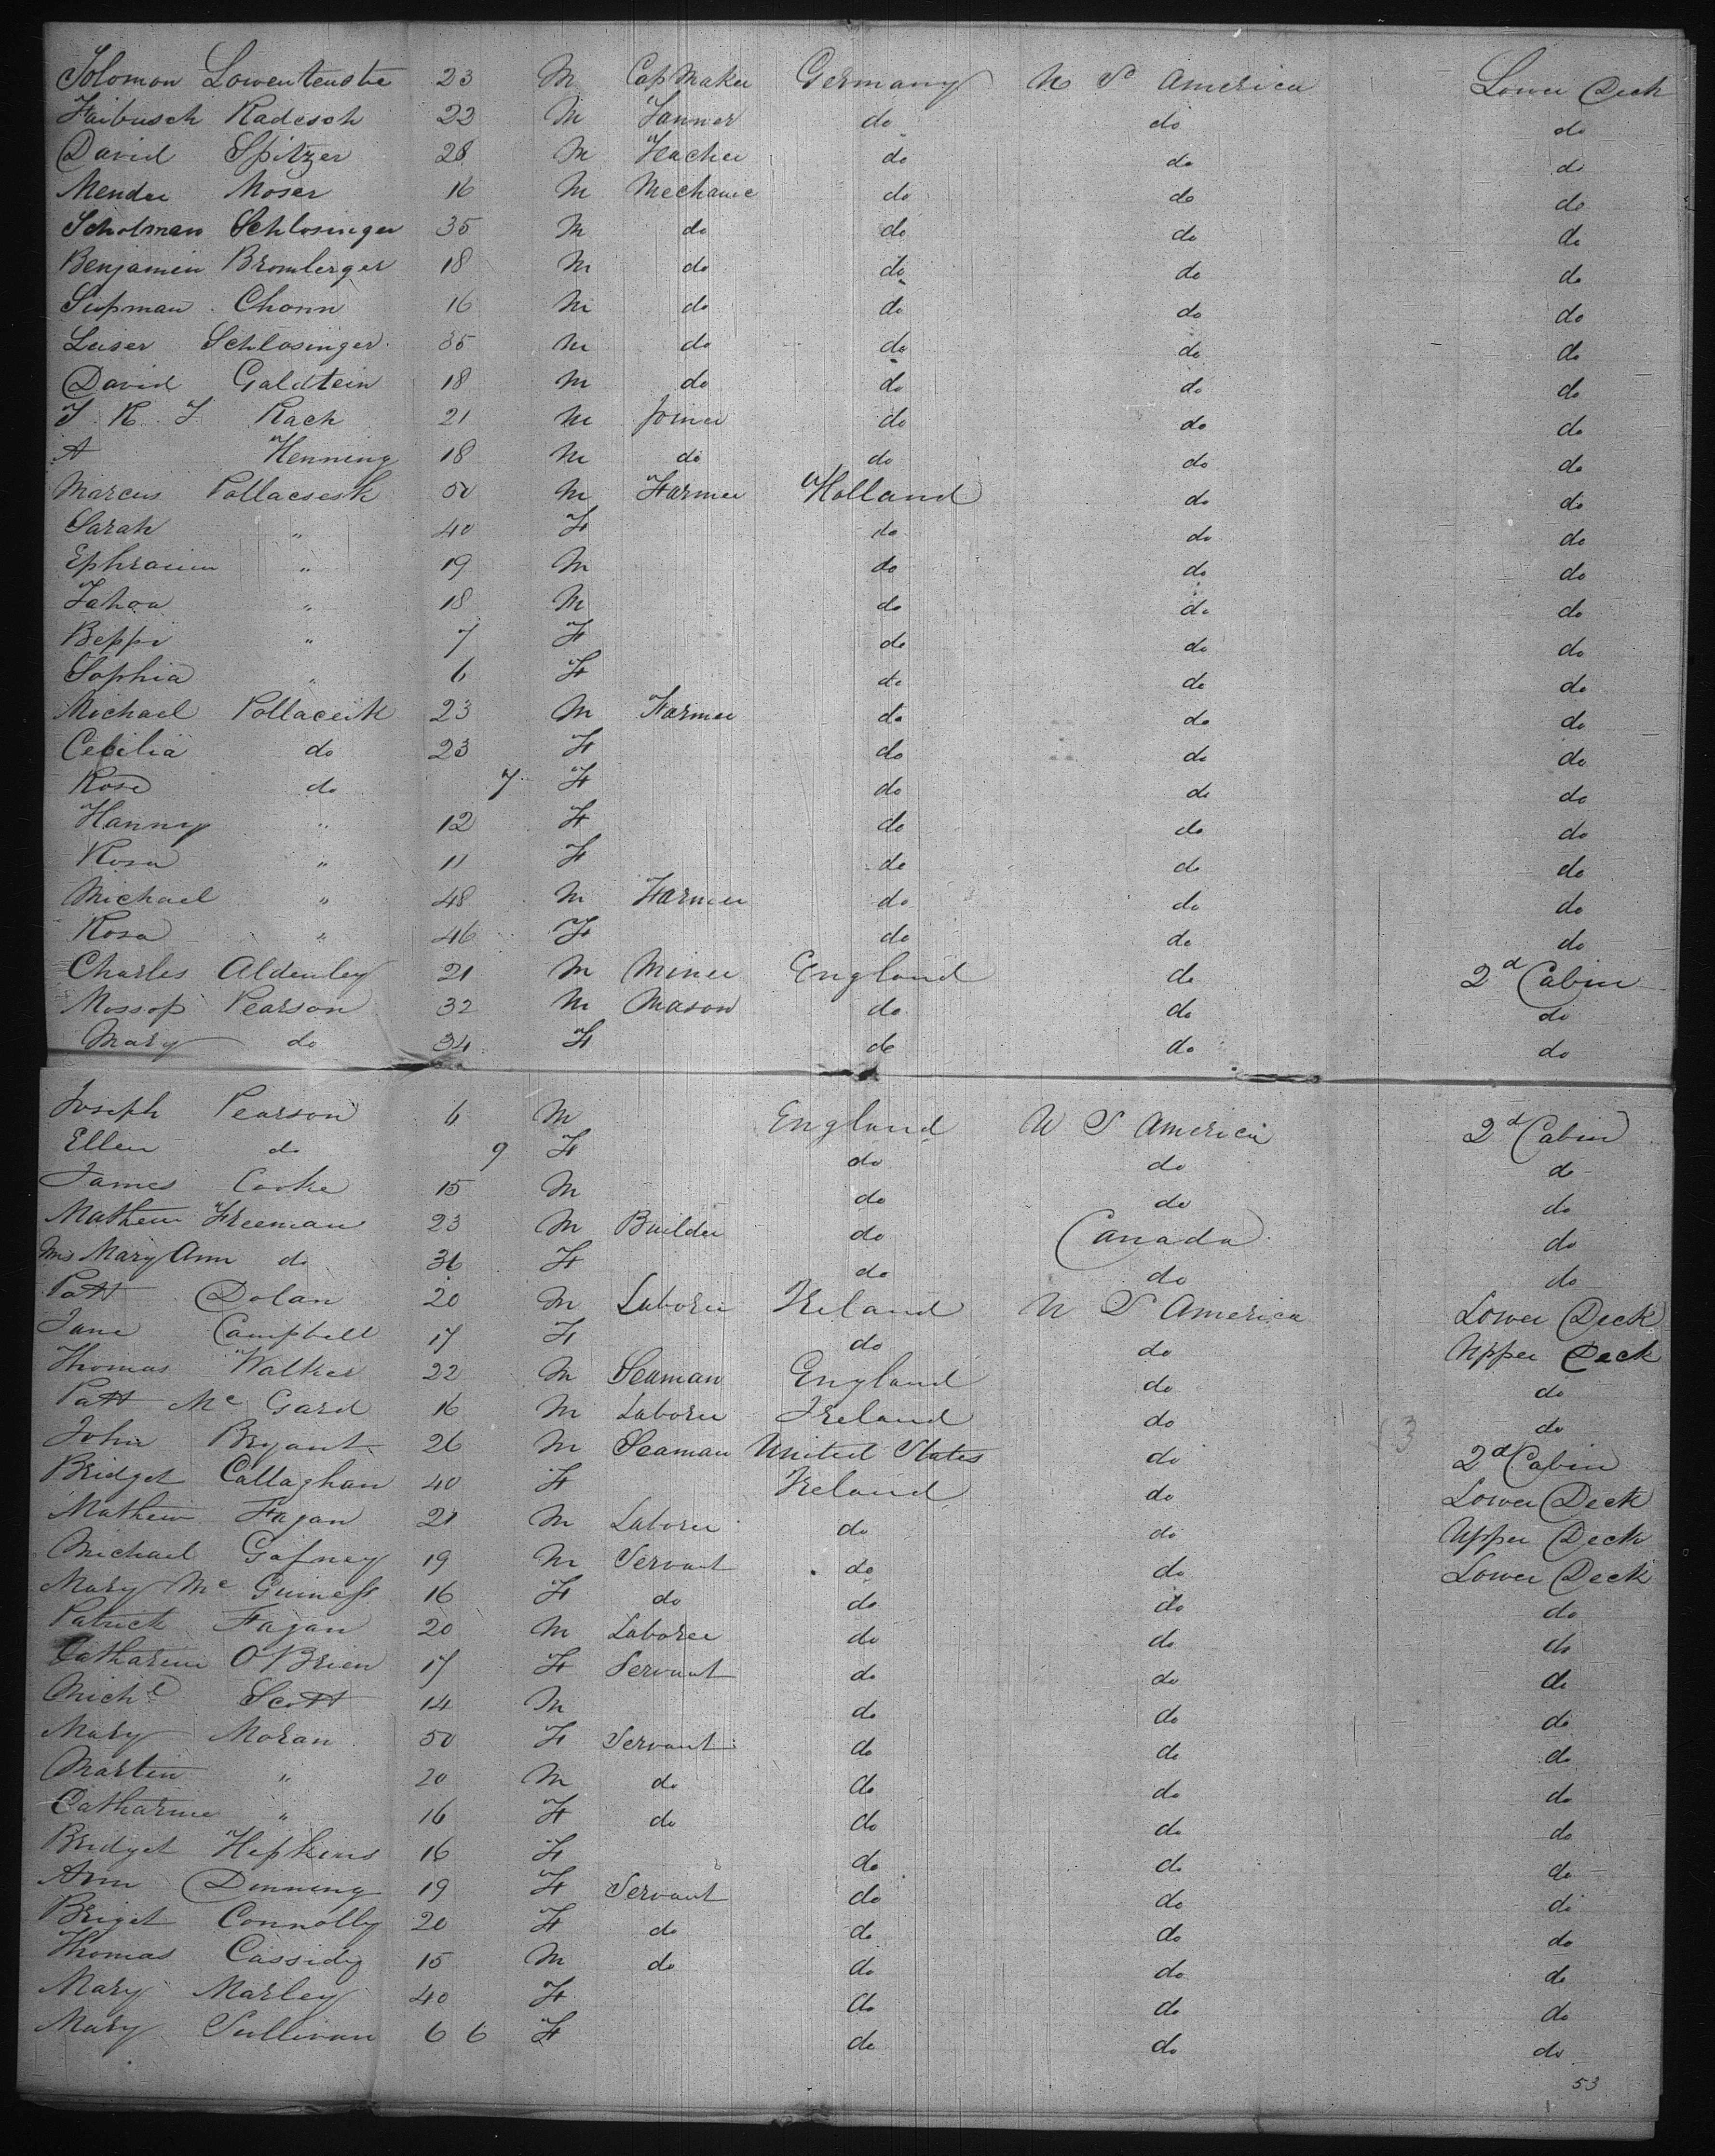 Solomon Lowentenstie 23 M Cap Maker Germany U S America Lower Deck
Faibusch Radesch 22 M Tanner do do do
David Spitzer 28 M Teacher do do do
Mendee Moser 16 M Mechanic do do do
Scholmen Schlosinger 35 M do do do do
Benjamin Bromberger 18 M do do do do
Sipman Chonn 16 M do do do do
Leiser Schlosinger 35 M do do do do
David Galdtein 18 M do do do do
J. R. J. Rach 21 M Joiner do do do
A Henning 18 M do do do do
Marcus Pollacsesk 50 M Farmer Holland do do
Sarah " 40 F do do do
Ephraim " 19 M do do do
Jahoa " 18 M do do do
Beppi " 7 F do do do
Sophia " 6 F do do do
Michael Pollaceik 23 M Farmer do do do
Cecilia do 23 F do do do
Rose do 7 F do do do
Hanny " 12 F do do do
Rosa " 11 F do do do
Michael " 48 M Farmer do do do
Rosa " 46 F do do do
Charles Aldenley 21 M Miner England do 2d Cabin
Mossop Pearson 32 M Mason do do do
Mary do 34 F do do do
Joseph Pearson 6 M England U S America 2d Cabin
Ellen do 9 F do do do
James Cooke 15 M do do do
Mathew Freeman 23 M Builder do Canada do
Mrs Mary Ann do 36 F do do do
Patt Dolan 20 M Laborer Ireland U S America Lower Deck
Jane Campbell 17 F do do Upper Deck
Thomas Walker 22 M Seaman England do do
Patt Mc Gard 16 M Laborer Ireland do do
John Bryant 26 M Seaman United States do 2d Cabin
Bridget Callaghan 40 F Ireland do Lower Deck
Mathew Fagan 21 M Laborer do do Upper Deck
Michael Gafney 19 M Servant do do Lower Deck
Mary Mc Guiness 16 F do do do do
Patrick Fagan 20 M Laborer do do do
Catharine O'Brien 17 F Servant do do do
Michl Scott 14 M do do do
Mary Moran 50 F Servant do do do
Martin " 20 M do do do do
Catharine " 16 F do do do do
Bridget Hopkins 16 F do do do
Ann Dinning 19 F Servant do do do
Briget Connolly 20 F do do do do
Thomas Cassidy 15 M do do do do
Mary Marley 40 F do do do
Mary Sullivan 6 6 F do do do
53